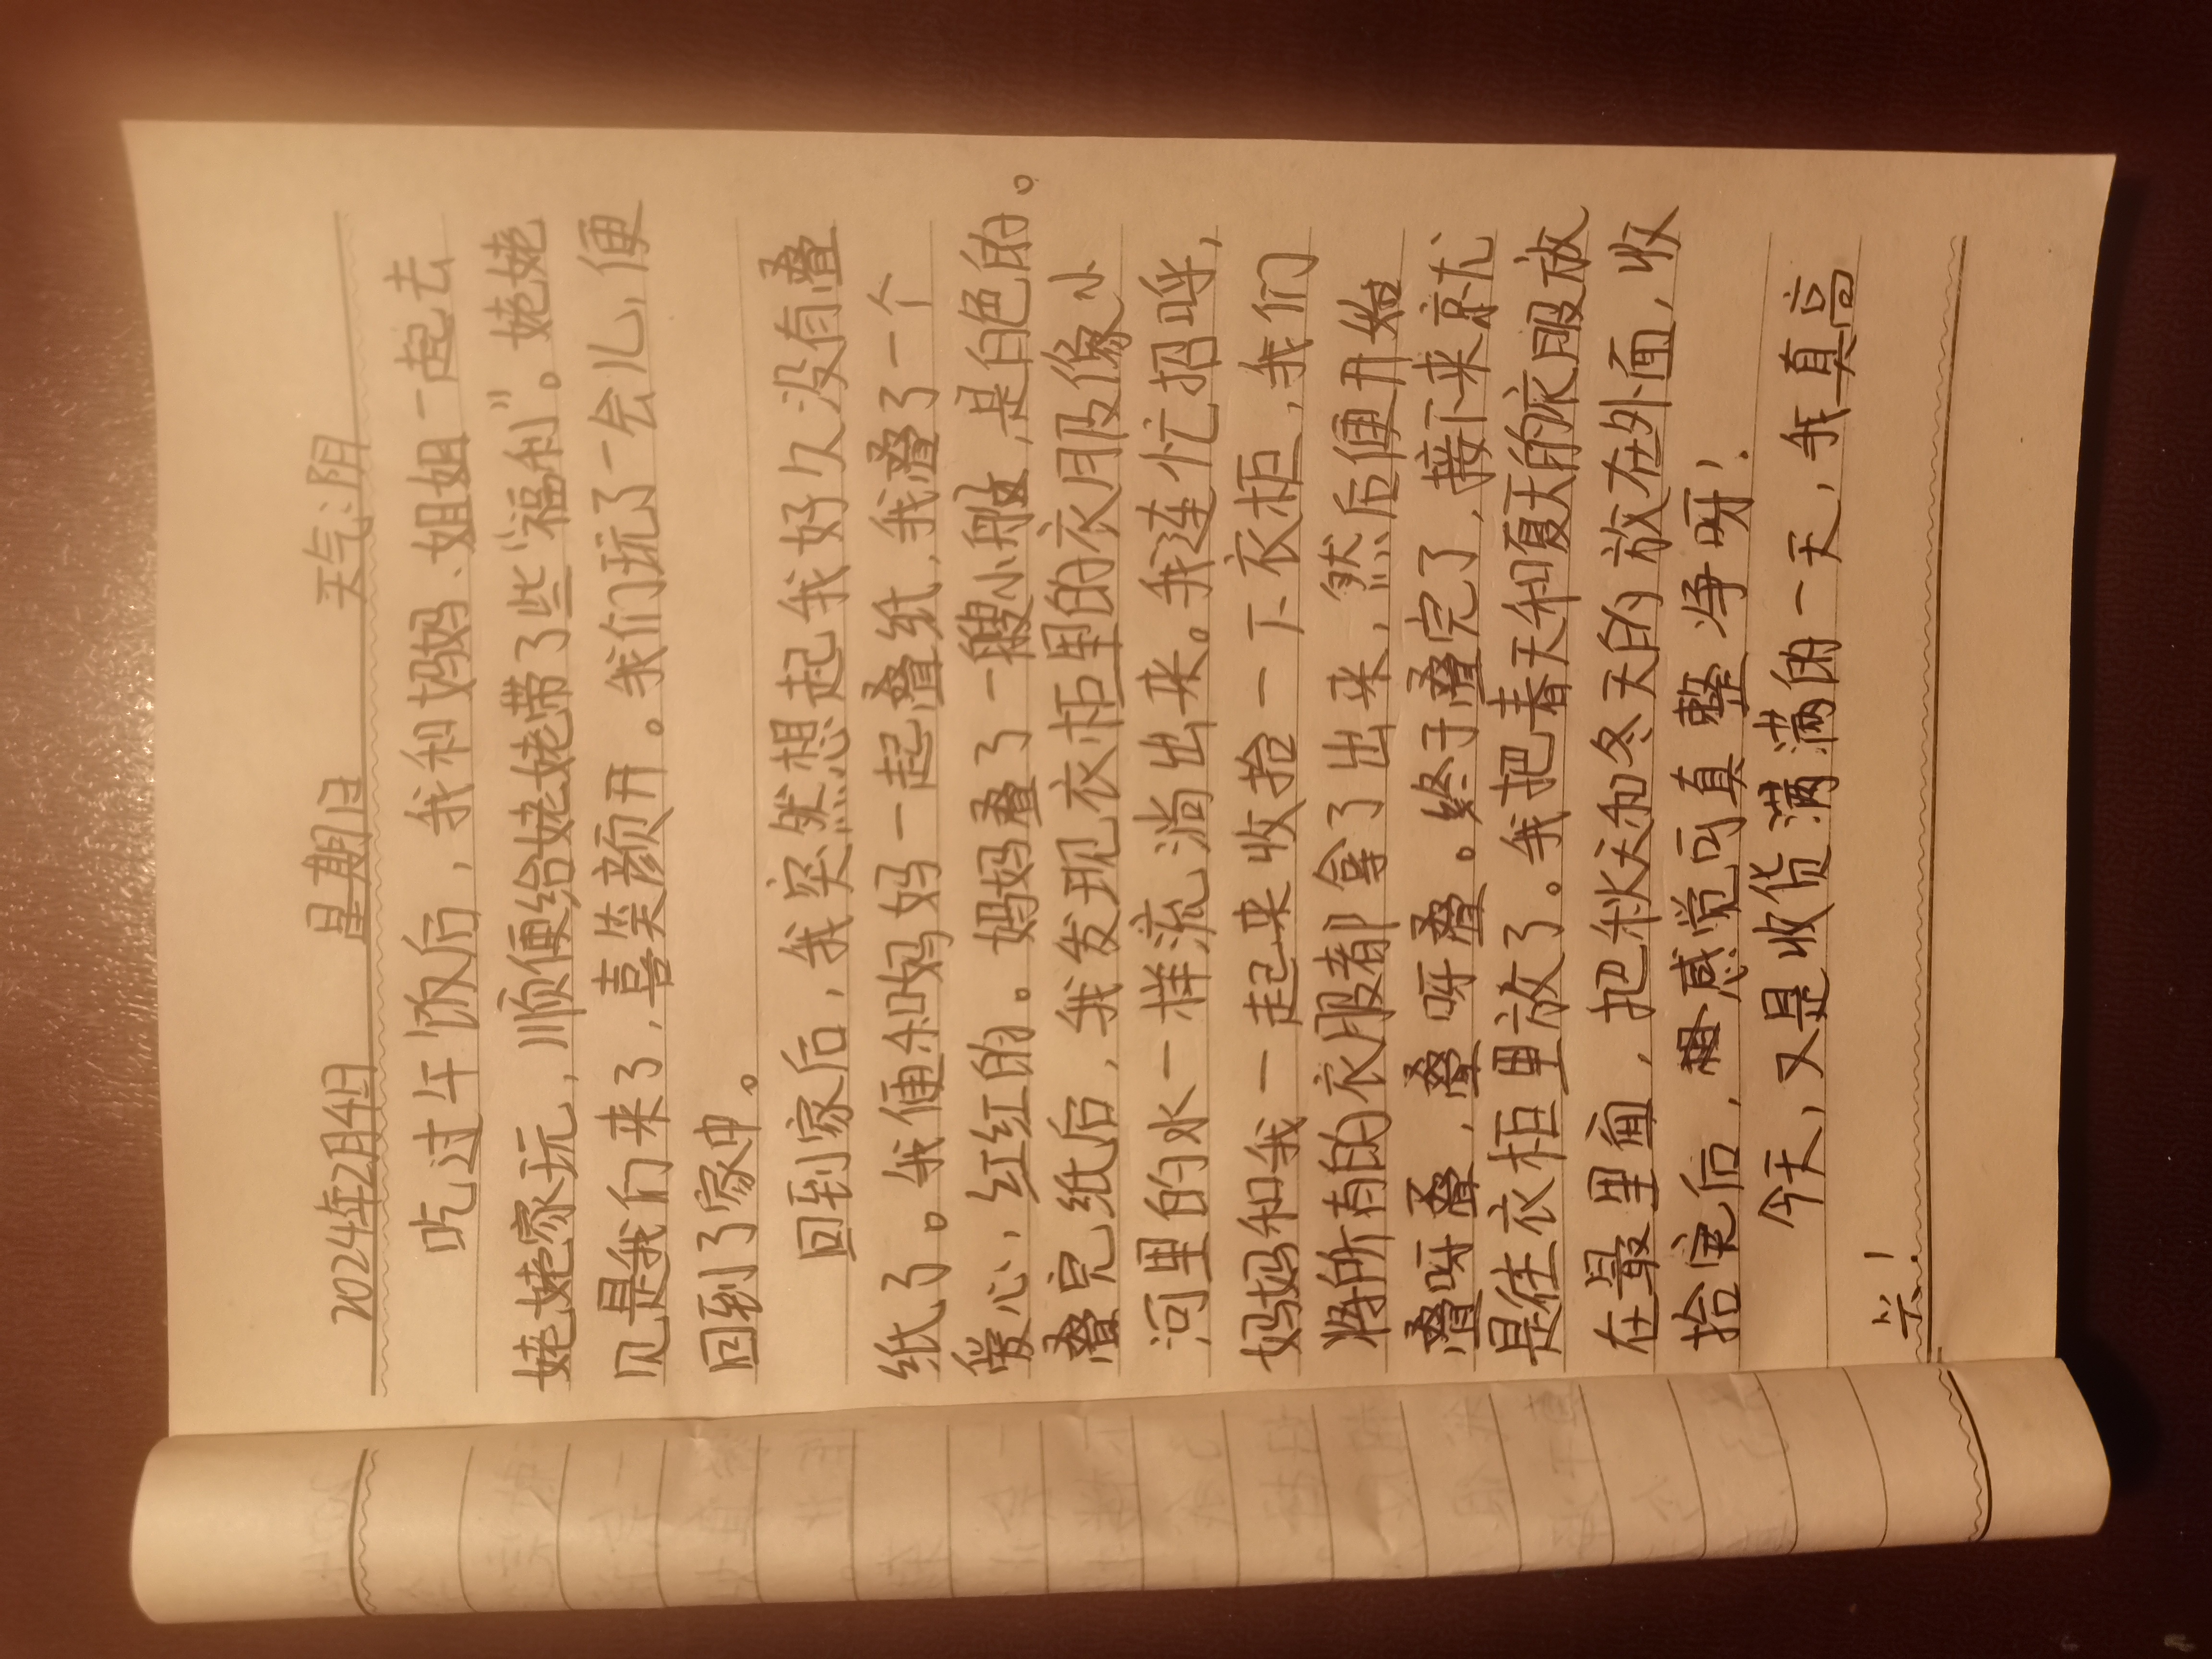 2024年2月4日 星期日 天气:阴
吃过午饭后,我和妈妈、姐姐一起去
姥姥家玩,顺便给姥姥带了些“福利”。姥姥
见是我们来了,喜笑颜开。我们玩了一会儿,便
回到了家中。
回到家后,我突然想起我好久没有叠
纸了。我便和妈妈一起叠纸,我叠了一个
爱心,红红的。妈妈叠了一艘小船,是白色的。
叠完纸后,我发现衣柜里的衣服像小
河里的水一样流淌出来。我连忙招呼,
妈妈和我一起来收拾一下衣柜,我们
将所有的衣服都拿了出来,然后便开始
叠呀叠,叠呀叠。终于叠完了,接下来就
是往衣柜里放了。我把春天和夏天的衣服放
在最里面,把秋天和冬天的放在外面,收
拾完后,感觉可真整净呀!
今天,又是收货满满的一天,我真高
兴!